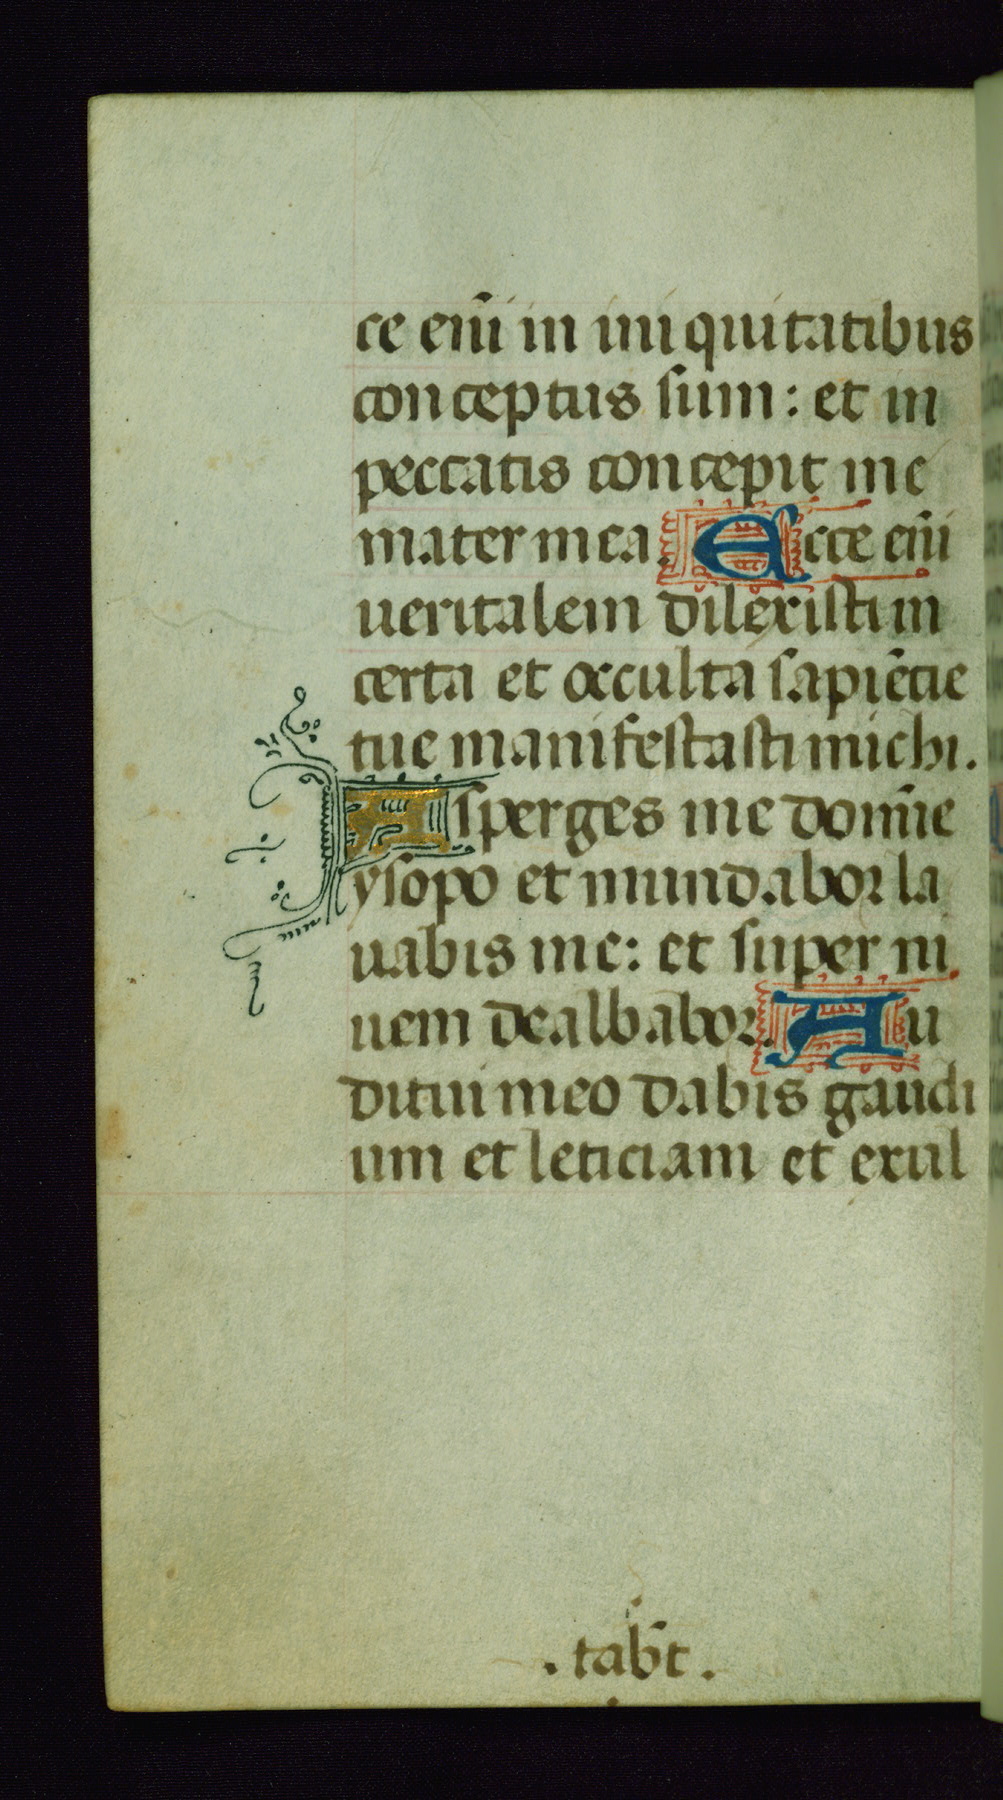 ce enī in iniquitatibus
conceptus sum: et in
peccatis concepit me
mater mea. Ecce enī
ueritatem dilexisti in
certa et occulta sapiētie
tue manifestasti michi.
Asperges me domīe
ysopo et mundabor la
uabis me: et super ni
uem dealbabor. Au
ditui meo dabis gaudi
um et leticiam et exul
. tab̄t .